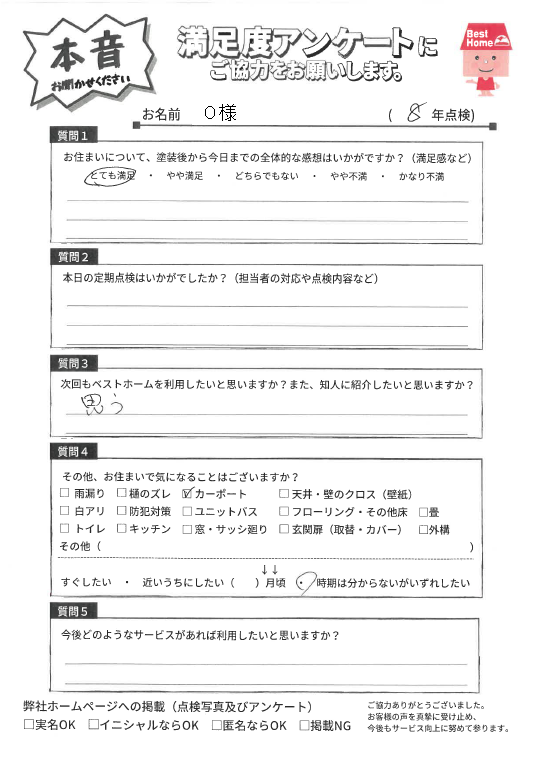 本音
お聞かせください
満足度アンケートに
ご協力をお願いします。
Best
Home
お名前 O様 ( 8 年点検)
質問1
お住まいについて、塗装後から今日までの全体的な感想はいかがですか？（満足感など）
とても満足 ・ やや満足 ・ どちらでもない ・ やや不満 ・ かなり不満
質問2
本日の定期点検はいかがでしたか？（担当者の対応や点検内容など）
質問3
次回もベストホームを利用したいと思いますか？また、知人に紹介したいと思いますか？
思う
質問4
その他、お住まいで気になることはございますか？
☐ 雨漏り ☐ 樋のズレ ☑ カーポート ☐ 天井・壁のクロス（壁紙）
☐ 白アリ ☐ 防犯対策 ☐ ユニットバス ☐ フローリング・その他床 ☐畳
☐ トイレ ☐ キッチン ☐ 窓・サッシ廻り ☐ 玄関扉（取替・カバー） ☐外構
その他（ ）
↓↓
すぐしたい ・ 近いうちにしたい（ ）月頃 ・ 時期は分からないがいずれしたい
質問5
今後どのようなサービスがあれば利用したいと思いますか？
弊社ホームページへの掲載（点検写真及びアンケート）
☐実名OK ☐イニシャルならOK ☐匿名ならOK ☐掲載NG
ご協力ありがとうございました。
お客様の声を真摯に受け止め、
今後もサービス向上に努めて参ります。